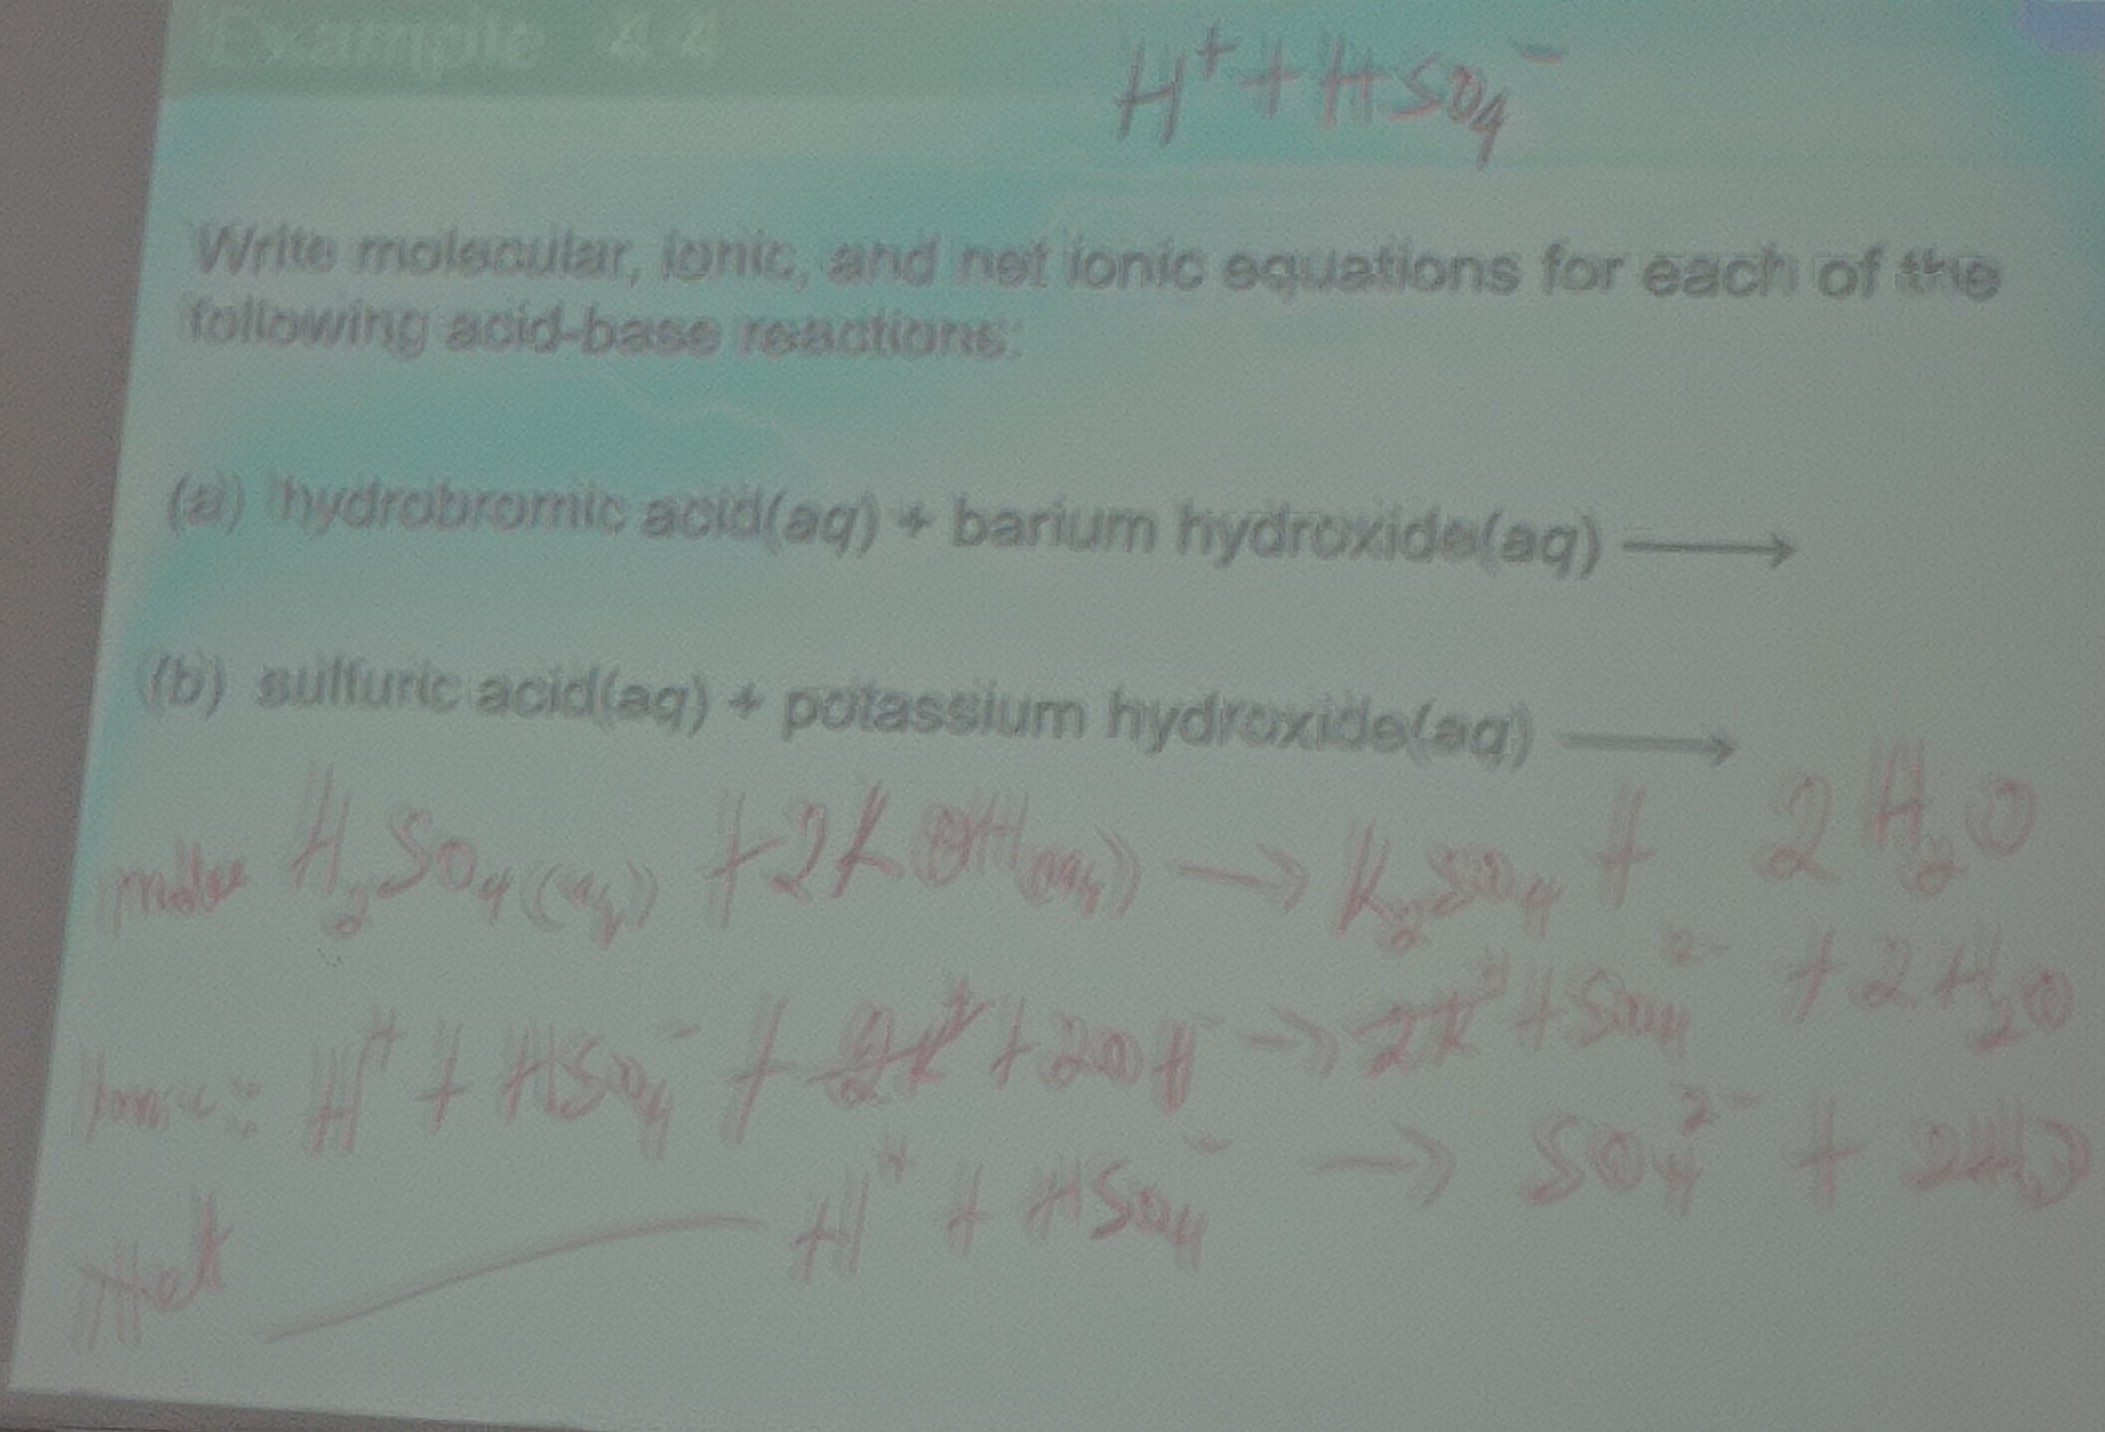 Example 4.4
H⁺ + HSO₄⁻
Write molecular, ionic, and net ionic equations for each of the
following acid-base reactions:
(a) hydrobromic acid(aq) + barium hydroxide(aq) ⟶
(b) sulfuric acid(aq) + potassium hydroxide(aq) ⟶
H₂SO₄(aq) + 2KOH(aq) → K₂SO₄ + 2H₂O
Ionic: H⁺ + HSO₄⁻ + 2K⁺ + 2OH⁻ → 2K⁺ + SO₄²⁻ + 2H₂O
Net H⁺ + HSO₄⁻ → SO₄²⁻ + 2H₂O